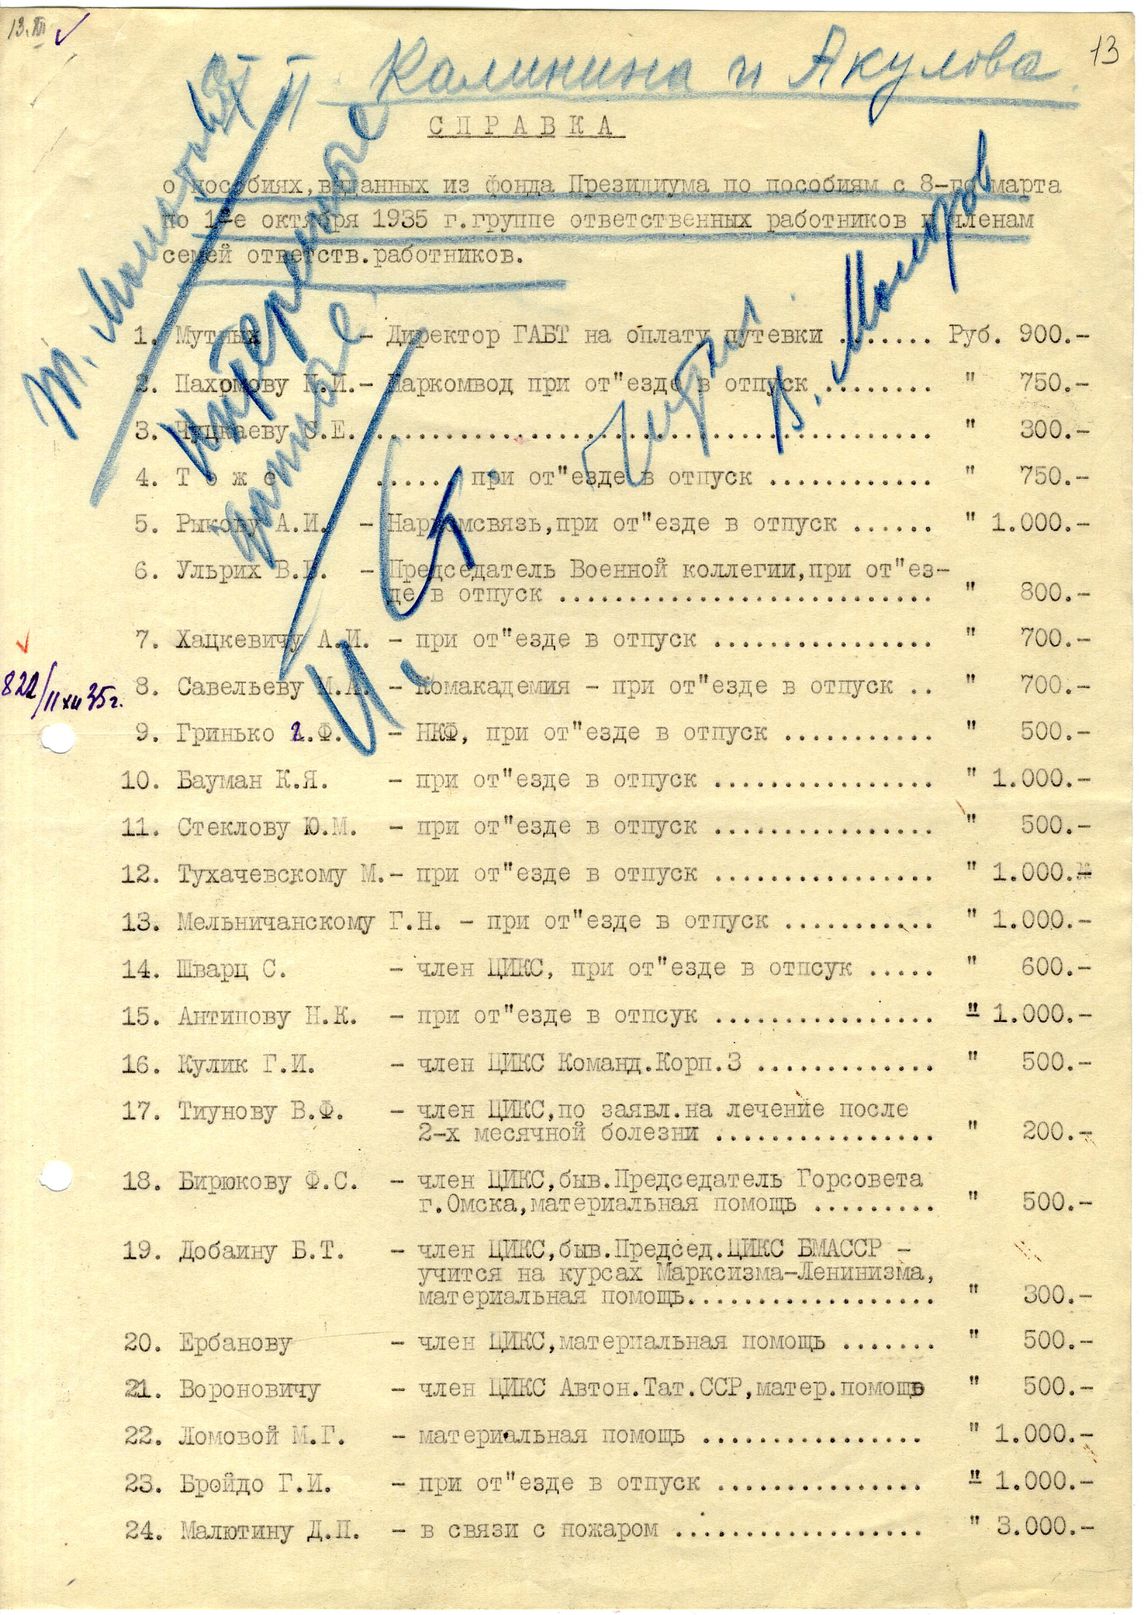 13.XII
13
Калинина и Акулова
т. Молотов
Интересные
данные
И. Ст.
Читал
В. Молотов
С П Р А В К А
о пособиях,выданных из фонда Президиума по пособиям с 8-го марта
по 1-е октября 1935 г.группе ответственных работников и членам
семей ответств.работников.
1. Мутных - Директор ГАБТ на оплату путевки ....... Руб. 900.-
2. Пахомову Н.И.- Наркомвод при от"езде в отпуск ........ " 750.-
3. Чуцкаеву С.Е. ........................................ " 300.-
4. Т о ж е ...... при от"езде в отпуск ............ " 750.-
5. Рыкову А.И. - Наркомсвязь,при от"езде в отпуск ...... " 1.000.-
6. Ульрих В.В. - Председатель Военной коллегии,при от"ез-
де в отпуск ........................... " 800.-
7. Хацкевичу А.И. - при от"езде в отпуск ................ " 700.-
822/11 XII 35 г.
8. Савельеву М.А. - Комакадемия - при от"езде в отпуск .. " 700.-
9. Гринько г.Ф. - НКФ, при от"езде в отпуск ........... " 500.-
10. Бауман К.Я. - при от"езде в отпуск ................ " 1.000.-
11. Стеклову Ю.М. - при от"езде в отпуск ................ " 500.-
12. Тухачевскому М.- при от"езде в отпуск ................ " 1.000.-
13. Мельничанскому Г.Н. - при от"езде в отпуск ........... " 1.000.-
14. Шварц С. - член ЦИКС, при от"езде в отпсук ..... " 600.-
15. Антипову Н.К. - при от"езде в отпсук ................ " 1.000.-
16. Кулик Г.И. - член ЦИКС Команд.Корп.3 ............. " 500.-
17. Тиунову В.Ф. - член ЦИКС,по заявл.на лечение после
2-х месячной болезни ................ " 200.-
18. Бирюкову Ф.С. - член ЦИКС,быв.Председатель Горсовета
г.Омска,материальная помощь ......... " 500.-
19. Добаину Б.Т. - член ЦИКС,быв.Председ.ЦИКС БМАССР -
учится на курсах Марксизма-Ленинизма,
материальная помощь.................. " 300.-
20. Ербанову - член ЦИКС,материальная помощь ....... " 500.-
21. Вороновичу - член ЦИКС Автон.Тат.ССР,матер.помощь " 500.-
22. Ломовой М.Г. - материальная помощь ................ " 1.000.-
23. Бройдо Г.И. - при от"езде в отпуск ............... " 1.000.-
24. Малютину Д.П. - в связи с пожаром .................. " 3.000.-